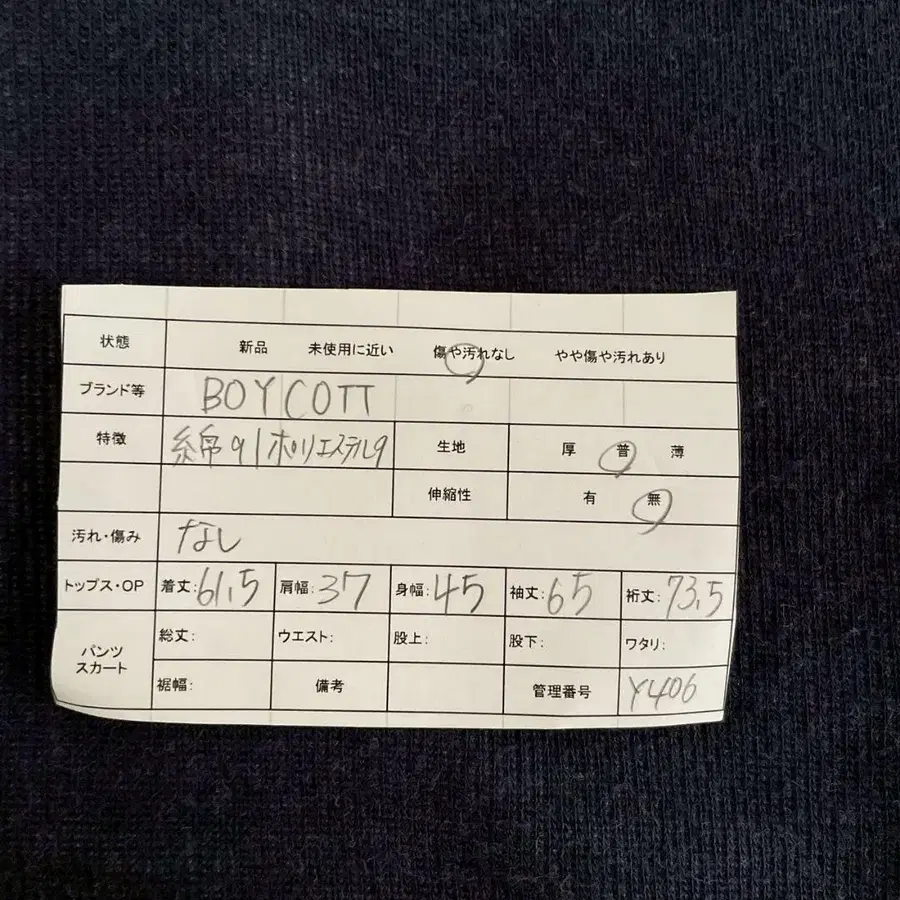 状態 新品 未使用に近い 傷や汚れなし やや傷や汚れあり
ブランド等 BOYCOTT
特徴 綿91ポリエステル9 生地 厚 普 薄
伸縮性 有 無
汚れ・傷み なし
トップス・OP 着丈:61.5 肩幅:37 身幅:45 袖丈:65 裄丈:73.5
パンツ スカート 総丈: ウエスト: 股上: 股下: ワタリ:
裾幅: 備考 管理番号 Y406